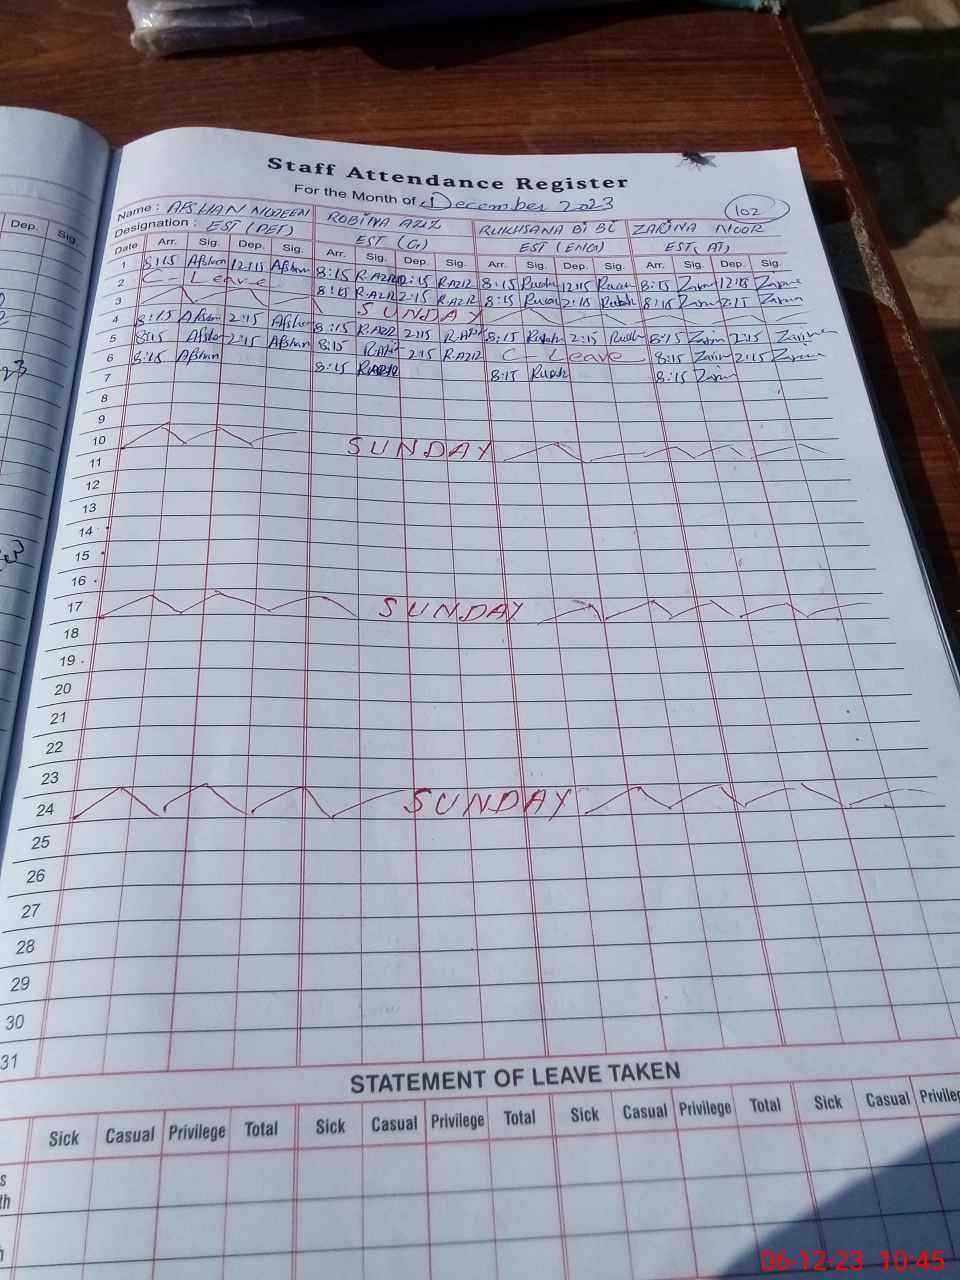 Staff Attendance Register
For the Month of December 2023
102
Name : AFSHAN NOZEEN ROBINA AZIZ RUKHSANA BI BI ZARINA NOOR
Designation : EST (PET) EST (G) EST (ENG) EST (AT)
Dep. Sig.
Date Arr. Sig. Dep. Sig. Arr. Sig. Dep. Sig. Arr. Sig. Dep. Sig. Arr. Sig. Dep. Sig.
1 8:15 Afshan 12:15 Afshan 8:15 R.AZIZ 12:15 R.AZIZ 8:15 12:15 8:15 12:15
2 C - Leave 8:15 R.AZIZ 2:15 R.AZIZ 8:15 2:15 8:15 2:15
3 SUNDAY
4 8:15 Afshan 2:15 Afshan 8:15 R.AZIZ 2:15 8:15 2:15 8:15 2:15
5 8:15 Afshan 2:15 Afshan 8:15 2:15 R.AZIZ C - Leave 8:15 2:15
6 8:15 Afshan 8:15 8:15 8:15
7
8
9
10 SUNDAY
11
12
13
14
15
16
17 SUNDAY
18
19
20
21
22
23
24 SUNDAY
25
26
27
28
29
30
31
STATEMENT OF LEAVE TAKEN
Sick Casual Privilege Total Sick Casual Privilege Total Sick Casual Privilege Total Sick Casual Privile
06-12-23 10:45